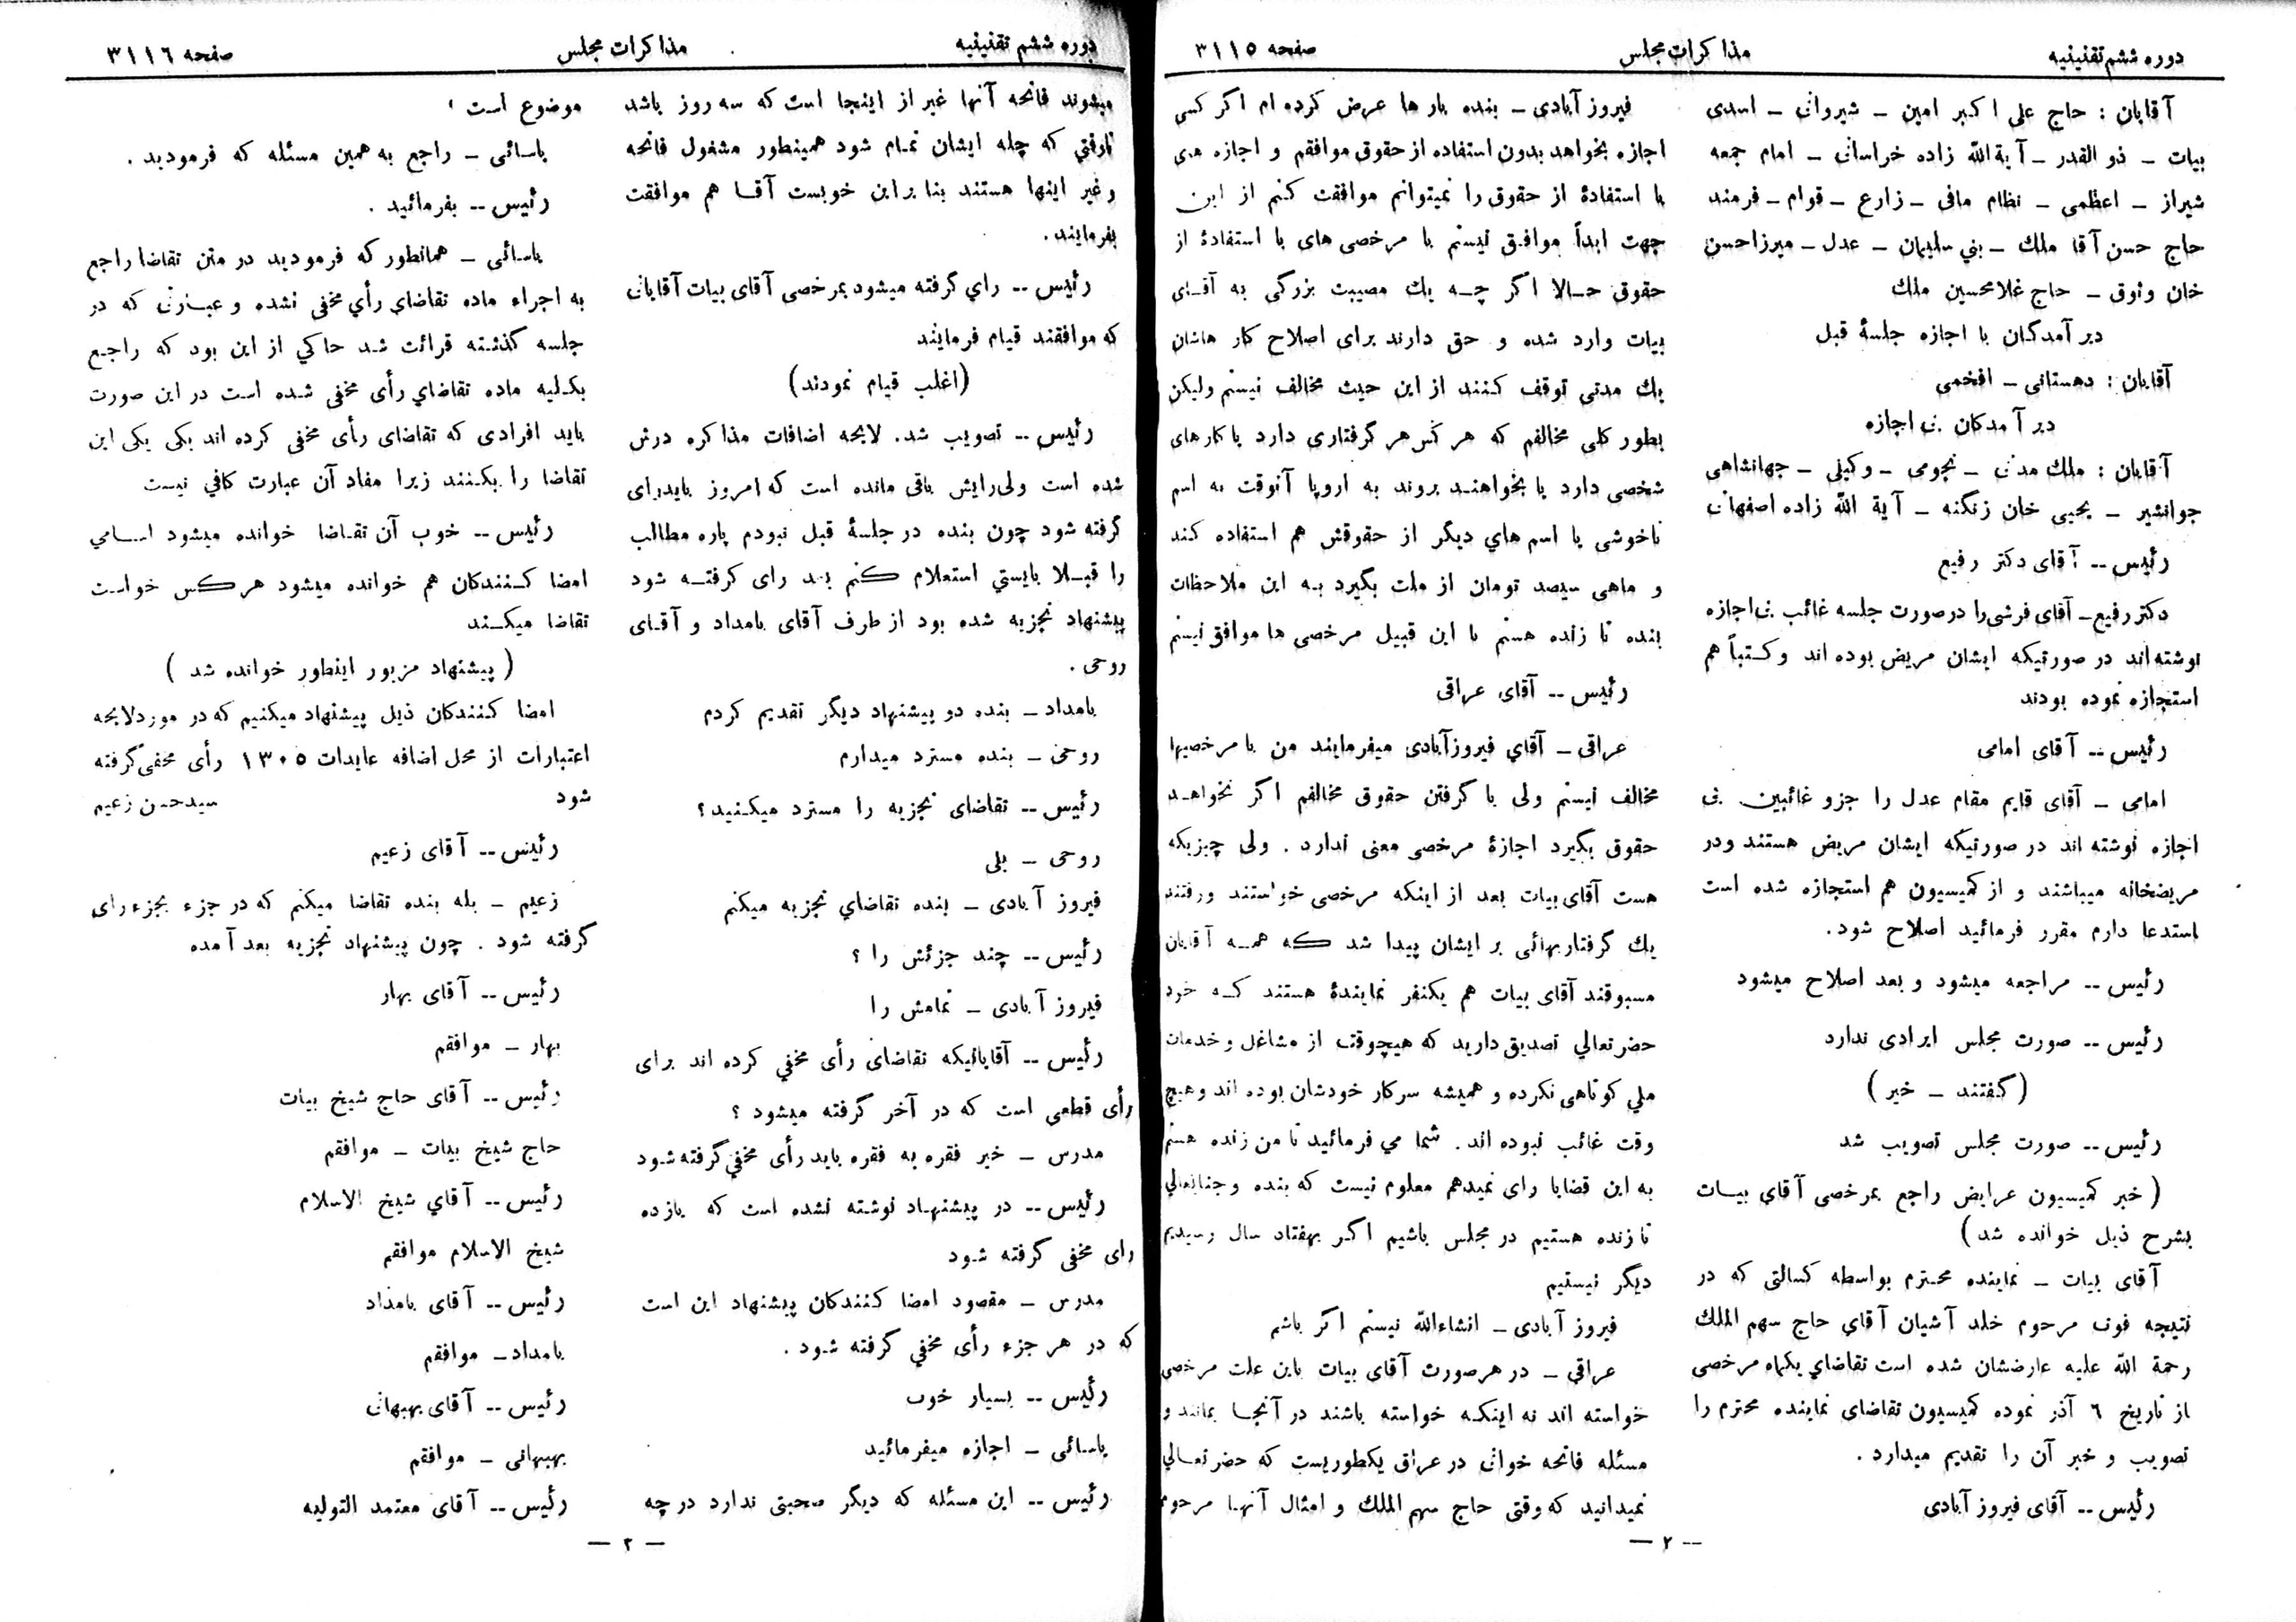 دوره ششم تقنینیه
مذاکرات مجلس
صفحه ۳۱۱۵
آقایان : حاج علی اکبر امین ــ شیروانی ــ اسدی
بیات ــ ذوالقدر ــ آیةالله زاده خراسانی ــ امام جمعه
شیراز ــ اعظمی ــ نظام مافی ــ زارع ــ قوام ــ فرمند
حاج حسن آقا ملك ــ بنی سلیمان ــ عدل ــ میرزاحسن
خان وثوق ــ حاج غلامحسین ملك
دیر آمدگان با اجازه جلسهٔ قبل
آقایان : دهستانی ــ افخمی
دیر آمدکان بی اجازه
آقایان : ملك مدنی ــ نجومی ــ وکیلی ــ جهانشاهی
جوانشیر ــ یحیی خان زنگنه ــ آیة الله زاده اصفهانی
رئیس ــ آقای دکتر رفیع
دکتر رفیع ــ آقای فرشی را در صورت جلسه غائب بی اجازه
نوشته اند در صورتیکه ایشان مریض بوده اند وکتباً هم
استجازه نموده بودند
رئیس ــ آقای امامی
امامی ــ آقای قایم مقام عدل را جزو غائبین بی
اجازه نوشته اند در صورتیکه ایشان مریض هستند ودر
مریضخانه میباشند و از کمیسیون هم استجازه شده است
استدعا دارم مقرر فرمائید اصلاح شود.
رئیس ــ مراجعه میشود و بعد اصلاح میشود
رئیس ــ صورت مجلس ایرادی ندارد
(گفتند ــ خیر)
رئیس ــ صورت مجلس تصویب شد
( خبر کمیسیون عرایض راجع بمرخصی آقای بیات
بشرح ذیل خوانده شد)
آقای بیات ــ نماینده محترم بواسطه کسالتی که در
نتیجه فوت مرحوم خلد آشیان آقای حاج سهم الملك
رحمة الله علیه عارضشان شده است تقاضای یکماه مرخصی
از تاریخ ٦ آذر نموده کمیسیون تقاضای نماینده محترم را
تصویب و خبر آن را تقدیم میدارد .
رئیس ــ آقای فیروز آبادی
فیروز آبادی ــ بنده بار ها عرض کرده ام اگر کسی
اجازه بخواهد بدون استفاده از حقوق موافقم و اجازه های
با استفادهٔ از حقوق را نمیتوانم موافقت کنم از این
جهت ابداً موافق نیستم با مرخصی های با استفادهٔ از
حقوق حالا اگر چه یك مصیبت بزرگی به آقای
بیات وارد شده و حق دارند برای اصلاح کار هاشان
یك مدتی توقف کنند از این حیث مخالف نیستم ولیکن
بطور کلی مخالفم که هر کس هر گرفتاری دارد یا کارهای
شخصی دارد یا بخواهند بروند به اروپا آنوقت به اسم
ناخوشی یا اسم های دیگر از حقوقش هم استفاده کند
و ماهی سیصد تومان از ملت بگیرد به این ملاحظات
بنده تا زنده هستم با این قبیل مرخصی ها موافق نیستم
رئیس ــ آقای عراقی
عراقی ــ آقای فیروزآبادی میفرمایند من با مرخصیها
مخالف نیستم ولی با گرفتن حقوق مخالفم اگر نخواهد
حقوق بگیرد اجازهٔ مرخصی معنی ندارد . ولی چیزیکه
هست آقای بیات بعد از اینکه مرخصی خواستند ورفتند
یك گرفتاریهائی بر ایشان پیدا شد که همه آقایان
مسبوقند آقای بیات هم یکنفر نمایندهٔ هستند که خود
حضرتعالی تصدیق دارید که هیچوقت از مشاغل و خدمات
ملی کوتاهی نکرده و همیشه سرکار خودشان بوده اند وهیچ
وقت غائب نبوده اند. شما می فرمائید تا من زنده هستم
به این قضایا رای نمیدهم معلوم نیست که بنده وجنابعالی
تا زنده هستیم در مجلس باشیم اگر بهفتاد سال رسیدیم
دیگر نیستیم
فیروز آبادی ــ انشاءالله نیستم اگر باشم
عراقی ــ در هرصورت آقای بیات باین علت مرخصی
خواسته اند نه اینکه خواسته باشند در آنجا بمانند و
مسئله فاتحه خوانی در عراق یکطوریست که حضرتعالی
نمیدانید که وقتی حاج سهم الملك و امثال آنها مرحوم
ــ ۲ ــ
دوره ششم تقنینیه
مذاکرات مجلس
صفحه ۳۱۱٦
میشوند فاتحه آنها غیر از اینجا است که سه روز باشد
تا وقتی که چله ایشان تمام شود همینطور مشغول فاتحه
وغیر اینها هستند بنا براین خوبست آقا هم موافقت
بفرمایند.
رئیس ــ رای گرفته میشود بمرخصی آقای بیات آقایانی
که موافقند قیام فرمایند
(اغلب قیام نمودند)
رئیس ــ تصویب شد. لایحه اضافات مذاکره درش
شده است ولی رایش باقی مانده است که امروز باید رای
گرفته شود چون بنده در جلسهٔ قبل نبودم پاره مطالب
را قبلا بایستی استعلام کنم بعد رای گرفته شود
پیشنهاد تجزیه شده بود از طرف آقای بامداد و آقای
روحی .
بامداد ــ بنده دو پیشنهاد دیگر تقدیم کردم
روحی ــ بنده مسترد میدارم
رئیس ــ تقاضای تجزیه را مسترد میکنید؟
روحی ــ بلی
فیروز آبادی ــ بنده تقاضای تجزیه میکنم
رئیس ــ چند جزئش را ؟
فیروز آبادی ــ تمامش را
رئیس ــ آقایانیکه تقاضای رأی مخفی کرده اند برای
رأی قطعی است که در آخر گرفته میشود ؟
مدرس ــ خیر فقره به فقره باید رأی مخفی گرفته شود
رئیس ــ در پیشنهاد نوشته نشده است که یازده
رای مخفی گرفته شود
مدرس ــ مقصود امضا کنندکان پیشنهاد این است
که در هر جزء رأی مخفی گرفته شود .
رئیس ــ بسیار خوب
یاسائی ــ اجازه میفرمائید
رئیس ــ این مسئله که دیگر صحبتی ندارد در چه
موضوع است ؟
یاسائی ــ راجع به همین مسئله که فرمودید .
رئیس ــ بفرمائید .
یاسائی ــ همانطور که فرمودید در متن تقاضا راجع
به اجزاء ماده تقاضای رأی مخفی نشده و عبارتی که در
جلسه گذشته قرائت شد حاکی از این بود که راجع
بکلیه ماده تقاضای رأی مخفی شده است در این صورت
باید افرادی که تقاضای رأی مخفی کرده اند یکی یکی این
تقاضا را بکنند زیرا مفاد آن عبارت کافی نیست
رئیس ــ خوب آن تقاضا خوانده میشود اسامی
امضا کنندکان هم خوانده میشود هرکس خواست
تقاضا میکند
( پیشنهاد مزبور اینطور خوانده شد )
امضا کنندکان ذیل پیشنهاد میکنیم که در مورد لایحه
اعتبارات از محل اضافه عایدات ۱۳۰۵ رأی مخفی گرفته
شود
سیدحسن زعیم
رئیس ــ آقای زعیم
زعیم ــ بله بنده تقاضا میکنم که در جزء بجزء رای
گرفته شود . چون پیشنهاد تجزیه بعد آمده
رئیس ــ آقای بهار
بهار ــ موافقم
رئیس ــ آقای حاج شیخ بیات
حاج شیخ بیات ــ موافقم
رئیس ــ آقای شیخ الاسلام
شیخ الاسلام موافقم
رئیس ــ آقای بامداد
بامداد ــ موافقم
رئیس ــ آقای بهبهانی
بهبهانی ــ موافقم
رئیس ــ آقای معتمد التولیه
ــ ۲ ــ